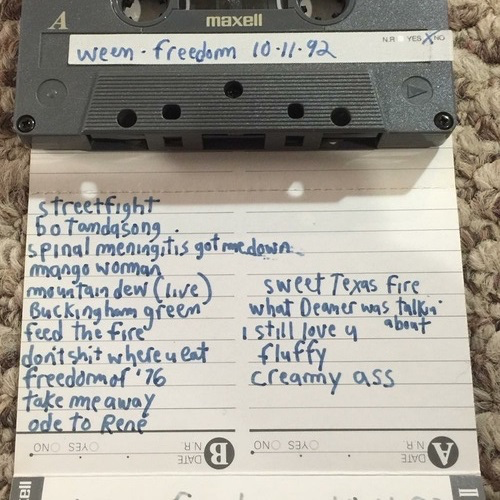 A
maxell
ween - freedom 10-11-92
N.R YES NO
streetfight
bo Tandasong.
spinal meningitis got me down
mango woman
mountain dew (live)
Buckingham green
feed the fire
don't shit where u eat
freedom of '76
take me away
ode to René
sweet Texas fire
what Deaner was talkin' about
I still love u
fluffy
creamy ass
B DATE N.R YES NO
A DATE N.R YES NO
ell